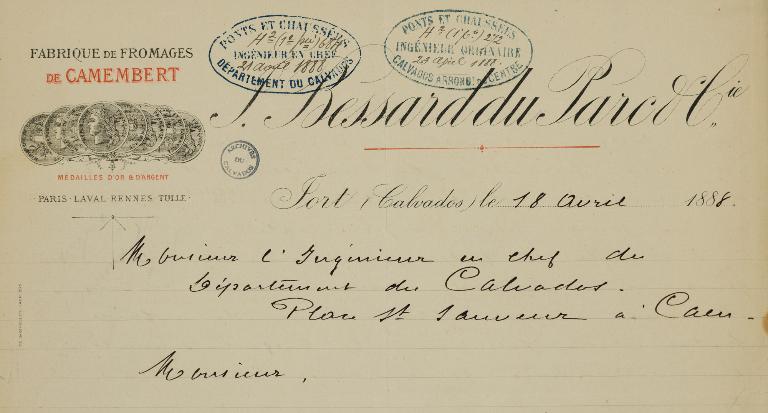 FABRIQUE DE FROMAGES
DE CAMEMBERT
MEDAILLES D'OR & D'ARGENT
PARIS-LAVAL RENNES TULLE
PONTS ET CHAUSSÉES
INGÉNIEUR EN CHEF
21 avril 1888
DÉPARTEMENT DU CALVADOS
PONTS ET CHAUSSÉES
INGÉNIEUR ORDINAIRE
23 April 1888
CALVADOS ARROND. CENTRE
Bessard du Parc & Cie
ARCHIVES
DU
CALVADOS
Fort (Calvados) le 18 avril 1888.
Monsieur l'Ingénieur en chef du
Département du Calvados.
Place St Sauveur à Caen.
Monsieur,